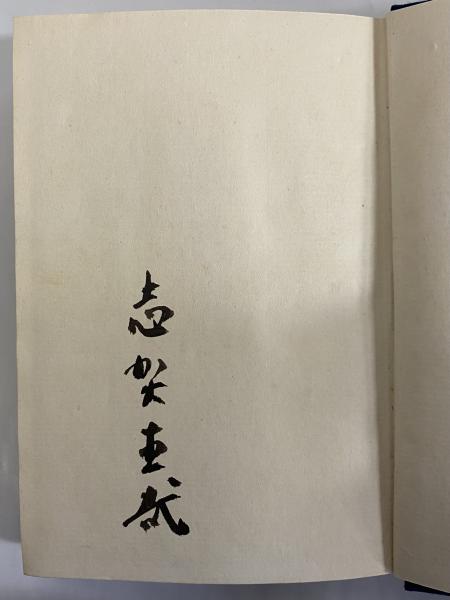 志賀直哉